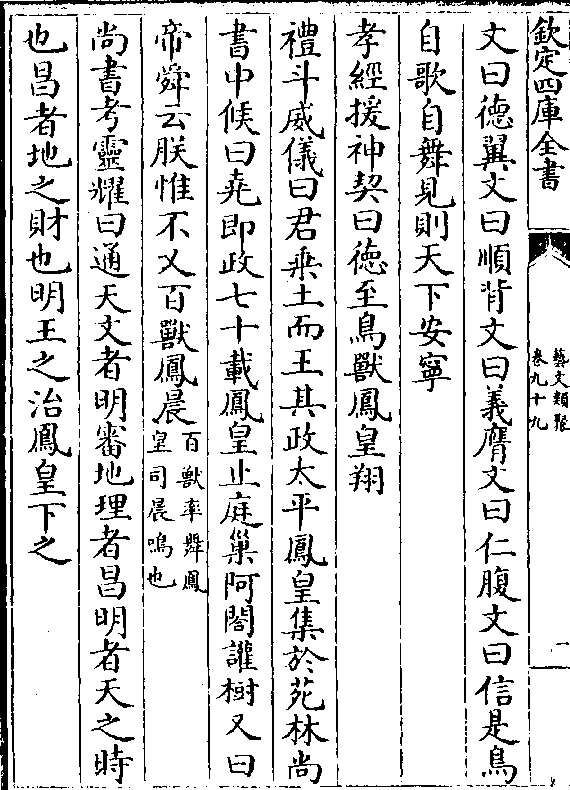 欽定四庫全書
藝文類聚
卷九十九
一
文曰德翼文曰順背文曰義膺文曰仁腹文曰信是鳥
自歌自舞見則天下安寧
孝經援神契曰德至鳥獸鳳皇翔
禮斗威儀曰君乘土而王其政太平鳳皇集於苑林尚
書中候曰堯即政七十載鳳皇止庭巢阿閣讙樹又曰
帝舜云朕惟不乂百獸鳳晨百獸率舞鳳皇司晨鳴也
尚書考靈耀曰通天文者明審地理者昌明者天之時
也昌者地之財也明王之治鳳皇下之